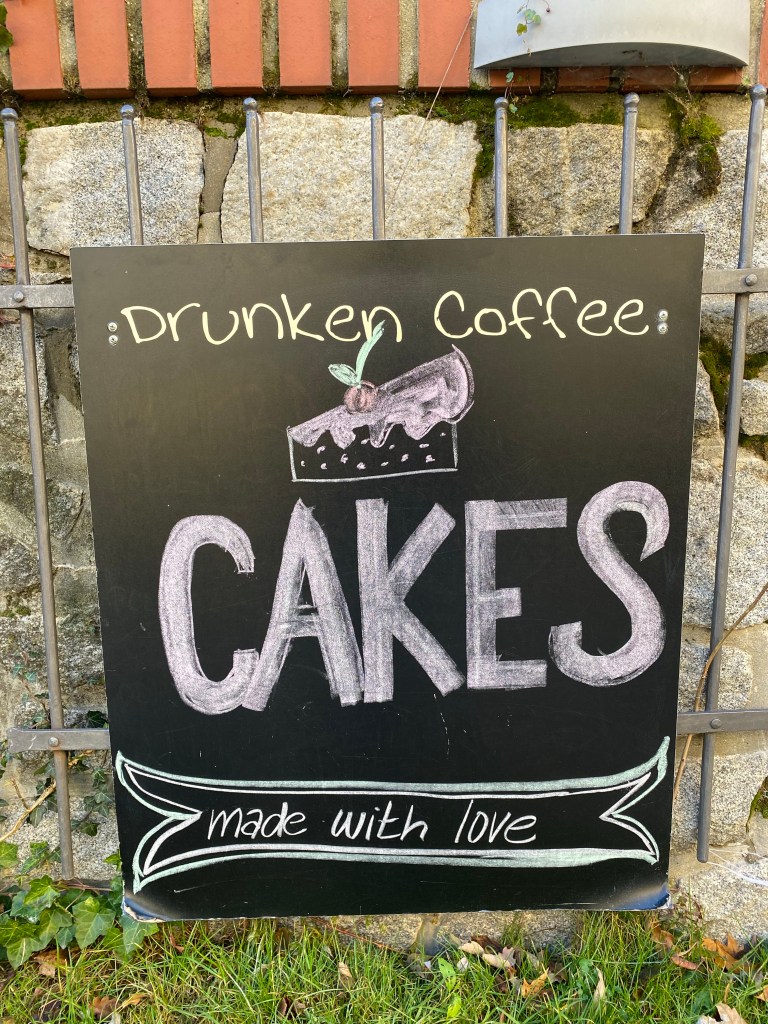 Drunken Coffee
CAKES
made with love